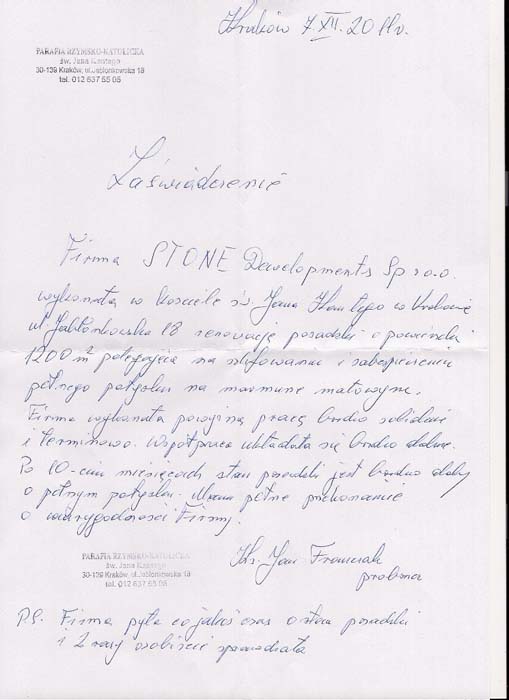 Kraków 7.XII.2011r.
PARAFIA RZYMSKO-KATOLICKA
św. Jana Kantego
30-139 Kraków, ul.Jabłonkowska 18
tel. 012 637 55 05
Zaświadczenie
Firma STONE Developments Sp z o.o.
wykonała w kościele św. Jana Kantego w Krakowie
ul. Jabłonkowska 18 renowację posadzki o powierzchni
1200 m² polegającą na szlifowaniu i zabezpieczeniu
pełnego połysku na marmurze matowym.
Firma wykonała powyższą pracę bardzo solidnie
i terminowo. Współpraca układała się bardzo dobrze.
Po 10-ciu miesiącach stan posadzki jest bardzo dobry
o pełnym połysku. Mam pełne przekonanie
o wiarygodności Firmy.
PARAFIA RZYMSKO-KATOLICKA
św. Jana Kantego
30-139 Kraków, ul.Jabłonkowska 18
tel. 012 637 55 05
Ks. Jan Franczak
proboszcz
P.S. Firma pyta co jakiś czas o stan posadzki
i 2 razy osobiście sprawdzała